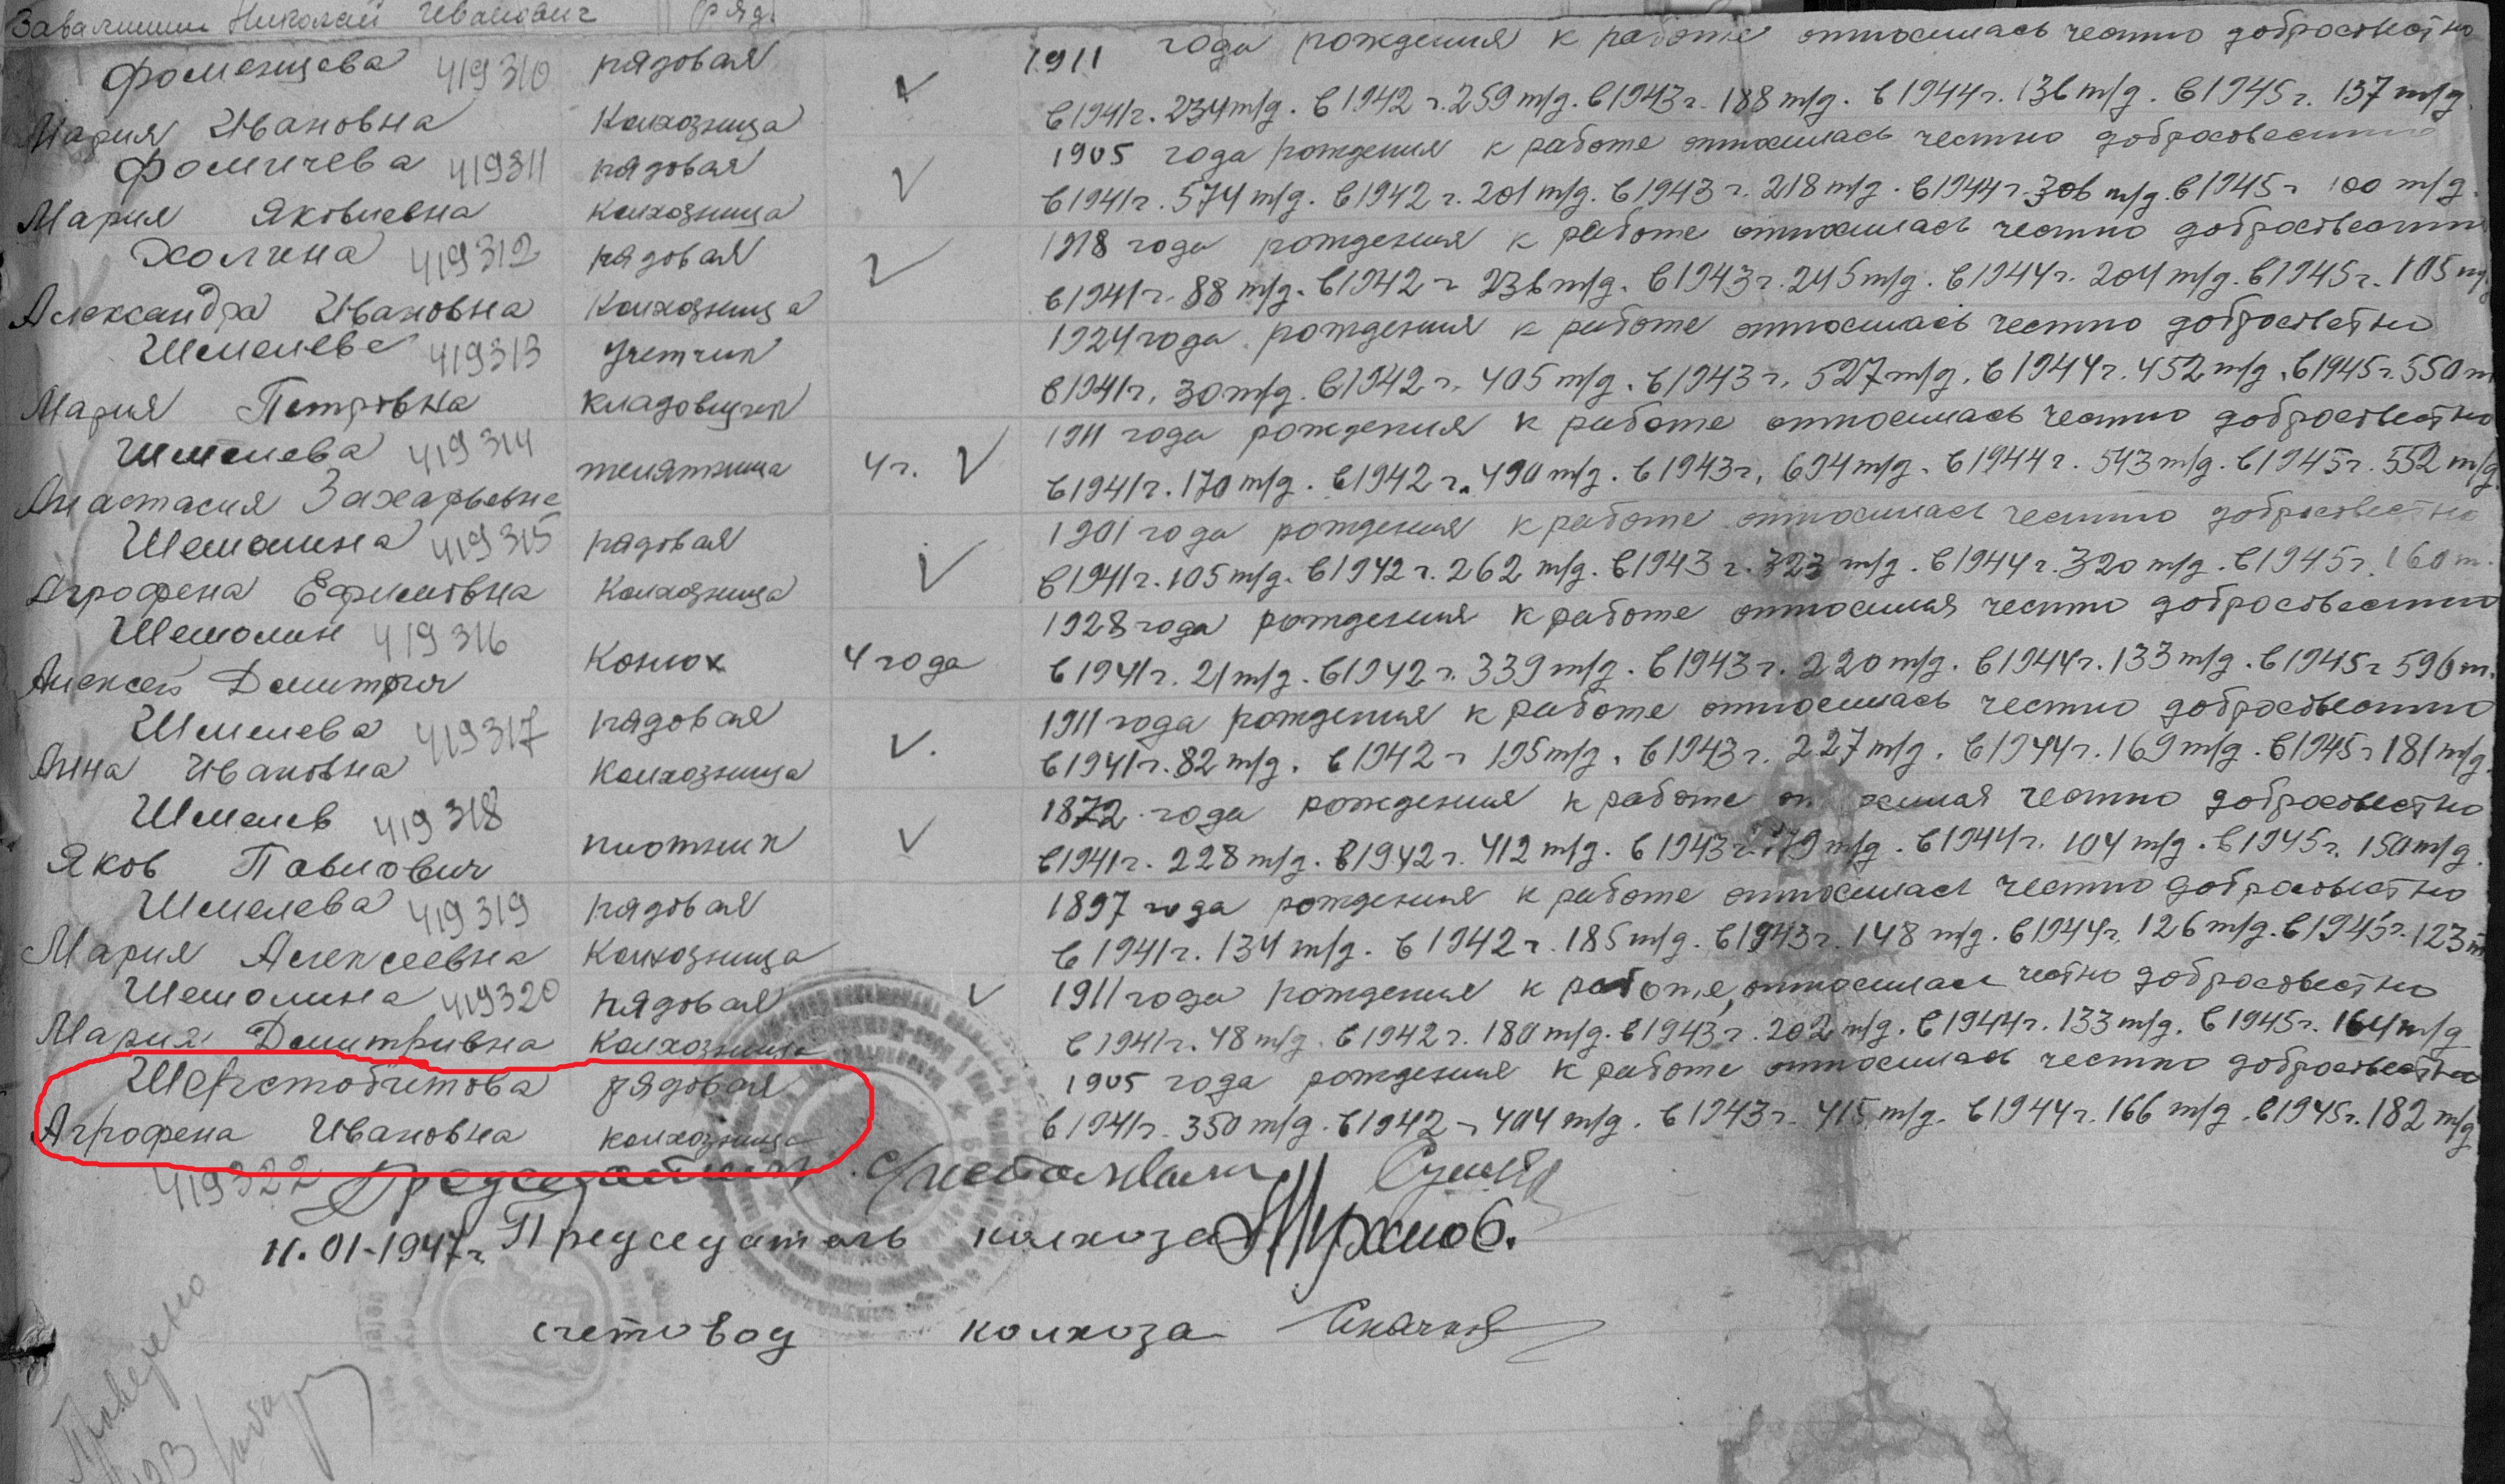 Завалишин Николай Иванович ряд.
Фоменцева 419310 рядовая 1911 года рождения к работе относилась честно добросовестно
Мария Ивановна колхозница в 1941 г. 234 т/д. в 1942 г. 259 т/д. в 1943 г. 188 т/д. в 1944 г. 136 т/д. в 1945 г. 137 т/д.
Фомичева 419311 рядовая 1905 года рождения к работе относилась честно добросовестно
Мария Яковлевна колхозница в 1941 г. 574 т/д. в 1942 г. 201 т/д. в 1943 г. 218 т/д. в 1944 г. 306 т/д. в 1945 г. 100 т/д.
Холина 419312 рядовая 1918 года рождения к работе относилась честно добросовестно
Александра Ивановна колхозница в 1941 г. 88 т/д. в 1942 г. 236 т/д. в 1943 г. 245 т/д. в 1944 г. 204 т/д. в 1945 г. 105 т/д
Шмелева 419313 учетчик 1924 года рождения к работе относилась честно добросовестно
Мария Петровна кладовщик в 1941 г. 30 т/д. в 1942 г. 405 т/д. в 1943 г. 527 т/д. в 1944 г. 452 т/д. в 1945 г. 550 т
Шмелева 419314 телятница 4 г. 1911 года рождения к работе относилась честно добросовестно
Анастасия Захарьевна в 1941 г. 170 т/д. в 1942 г. 490 т/д. в 1943 г. 694 т/д. в 1944 г. 543 т/д. в 1945 г. 552 т/д.
Шемолина 419315 рядовая 1901 года рождения к работе относилась честно добросовестно
Агрофена Ефимовна колхозница в 1941 г. 105 т/д. в 1942 г. 262 т/д. в 1943 г. 323 т/д. в 1944 г. 320 т/д. в 1945 г. 160 т.
Шемолин 419316 конюх 4 года 1928 года рождения к работе относился честно добросовестно
Алексей Дмитрич в 1941 г. 21 т/д. в 1942 г. 339 т/д. в 1943 г. 220 т/д. в 1944 г. 133 т/д. в 1945 г. 596 т.
Шмелева 419317 рядовая 1911 года рождения к работе относилась честно добросовестно
Анна Ивановна колхозница в 1941 г. 82 т/д. в 1942 г. 195 т/д. в 1943 г. 227 т/д. в 1944 г. 169 т/д. в 1945 г. 181 т/д.
Шмелев 419318 плотник 1872 года рождения к работе относился честно добросовестно
Яков Павлович в 1941 г. 228 т/д. в 1942 г. 412 т/д. в 1943 г. т/д. в 1944 г. 104 т/д. в 1945 г. 150 т/д.
Шмелева 419319 рядовая 1897 года рождения к работе относилась честно добросовестно
Мария Алексеевна колхозница в 1941 г. 134 т/д. в 1942 г. 185 т/д. в 1943 г. 148 т/д. в 1944 г. 126 т/д. в 1945 г. 123 т
Шемолина 419320 рядовая 1911 года рождения к работе, относилась честно добросовестно
Мария Дмитривна колхозница в 1941 г. 48 т/д. в 1942 г. 180 т/д. в 1943 г. 202 т/д. в 1944 г. 133 т/д. в 1945 г. 164 т/д
Шерстобитова рядовая 1905 года рождения к работе относилась честно добросовестно
Агрофена Ивановна колхозница в 1941 г. 350 т/д. в 1942 г. 404 т/д. в 1943 г. 415 т/д. в 1944 г. 166 т/д. в 1945 г. 182 т/д
419322 Председатель
11.01-1947 г. Председатель колхоза
счетовод колхоза
Проверено